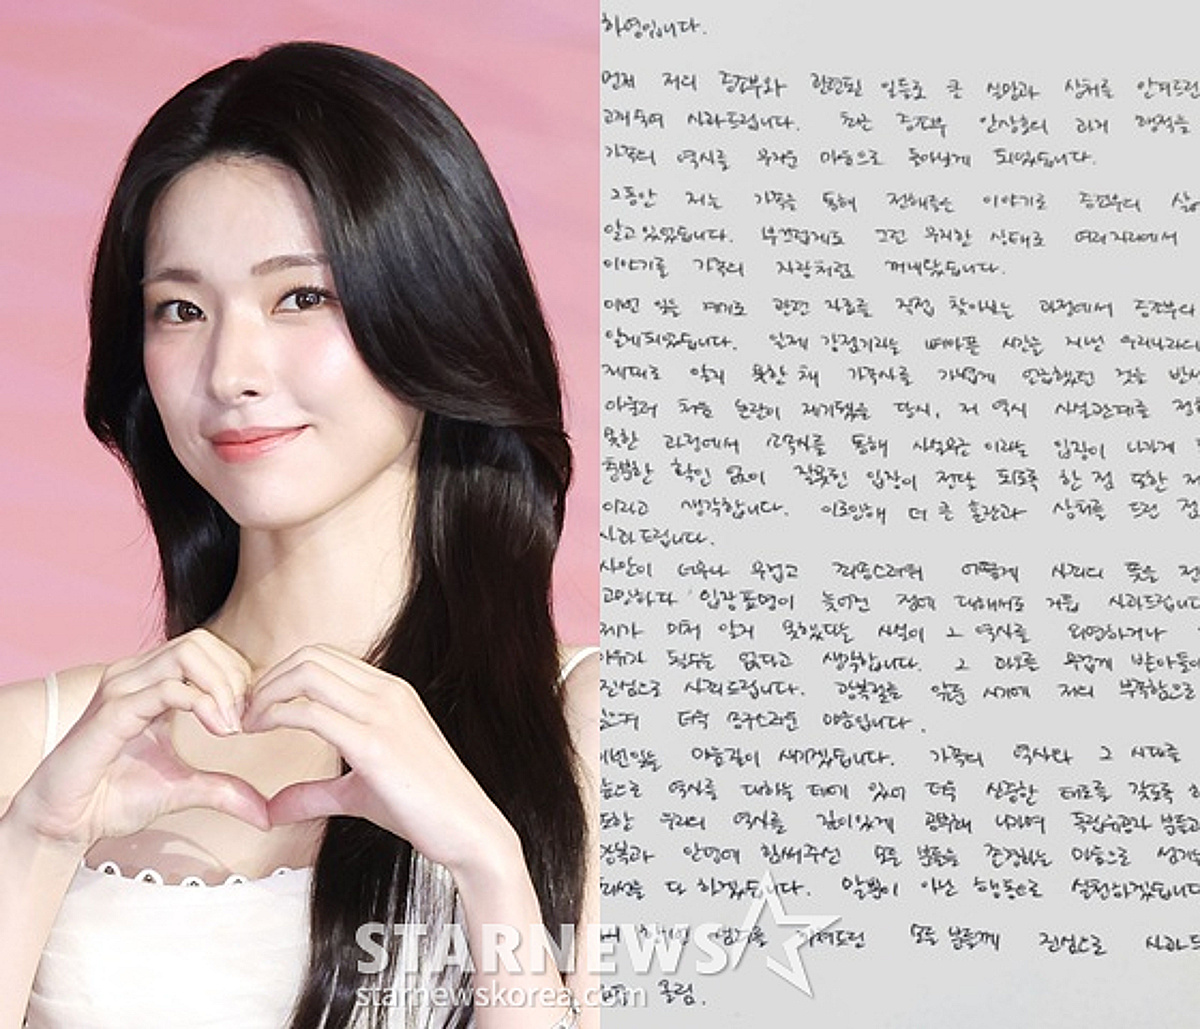 하영입니다.
먼저 저의 증조부와 관련된 일들로 큰 실망과 상처를 안겨드린
고개숙여 사과드립니다. 최근 증조부 안상호의 과거 행적을
가족의 역사를 무거운 마음으로 돌아보게 되었습니다.
그동안 저는 가족을 통해 전해들은 이야기로 증조부의 삶
알고있었습니다. 부끄럽게도 그런 무지한 상태로 여러자리에서
이야기를 가족의 자랑처럼 꺼내왔습니다.
이번 일을 계기로 관련 자료를 직접 찾아보는 과정에서 증조부의
알게되었습니다. 일제 강점기라는 뼈아픈 시간을 지낸 우리나라의
제대로 알지 못한 채 가족사를 가볍게 언급했던 것을 반성
아울러 처음 논란이 제기됐을 당시, 저 역시 사실관계를 정확
못한 과정에서 소속사를 통해 사실무근 이라는 입장이 나가게
충분한 확인 없이 잘못된 입장이 전달 되도록 한 점 또한 저
이라고 생각합니다. 이로인해 더 큰 혼란과 상처를 드린 점
사과드립니다.
사안이 너무나 무겁고 죄송스러워 어떻게 사죄의 뜻을 전
고민하다 입장표명이 늦어진 점에 대해서도 거듭 사과드립니다
제가 미처 알지 못했다는 사실이 그 역사를 외면하거나
이유가 될수는 없다고 생각합니다. 그 과오를 무겁게 받아들이
진심으로 사죄드립니다. 광복절을 앞둔 시기에 저의 부족함으로
더욱 송구스러운 마음입니다.
이번일을 마음깊이 새기겠습니다. 가족의 역사와 그 시대를
눈으로 역사를 대하는 데에 있어 더욱 신중한 태도를 갖도록
또한 우리의 역사를 깊이있게 공부해 나가며 독립유공자분들과
광복과 안녕에 힘써주신 모든 분들을 존경하는 마음으로 섬기
최선을 다 하겠습니다. 말뿐이 아닌 행동으로 실천하겠습니다
상처를 드린 모든 분들께 진심으로 사과드
올림.
STARNEWS
starnewskorea.com